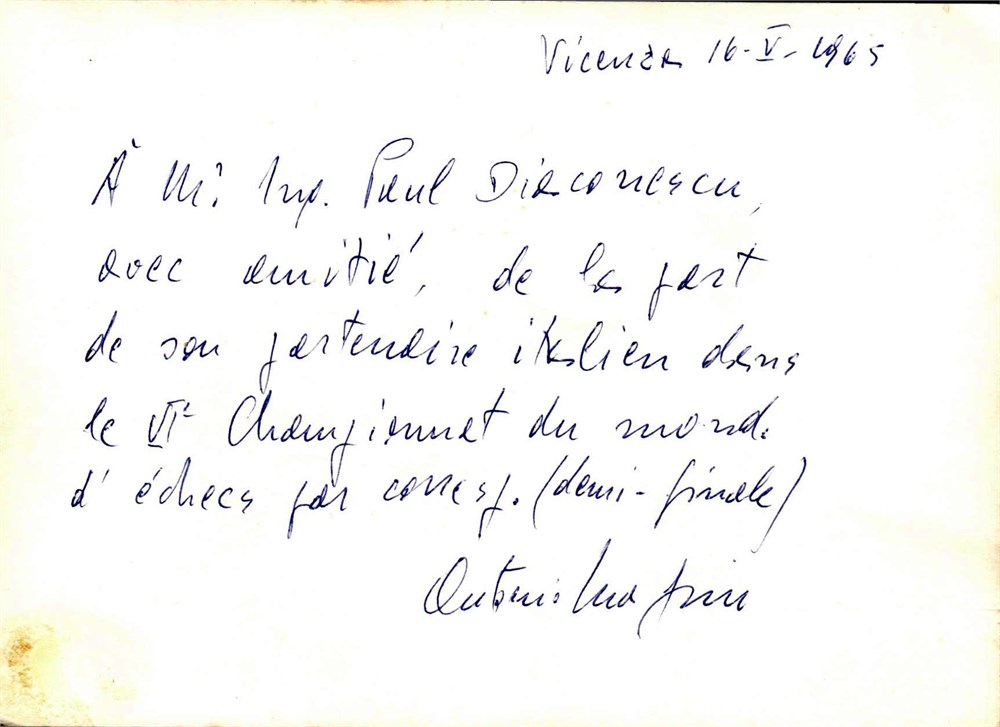 Vicenza 16-V-1965
À Mr. Ing. Paul Diaconescu,
avec amitié, de la part
de son partenaire italien dans
le VIe Championnat du monde
d'échecs par corresp. (demi-finale)
Antonio